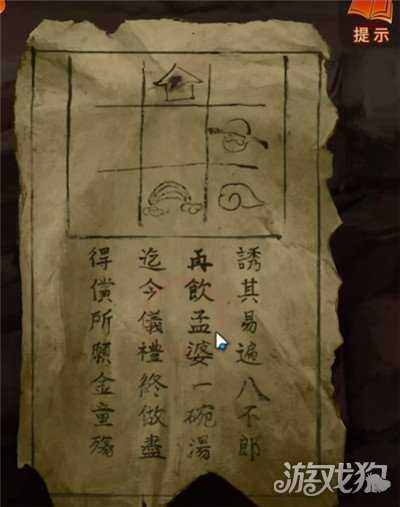 提示
誘其易遍八不郎
再飲孟婆一碗湯
迄今儀禮終做盡
得償所願金童殤
游戏狗